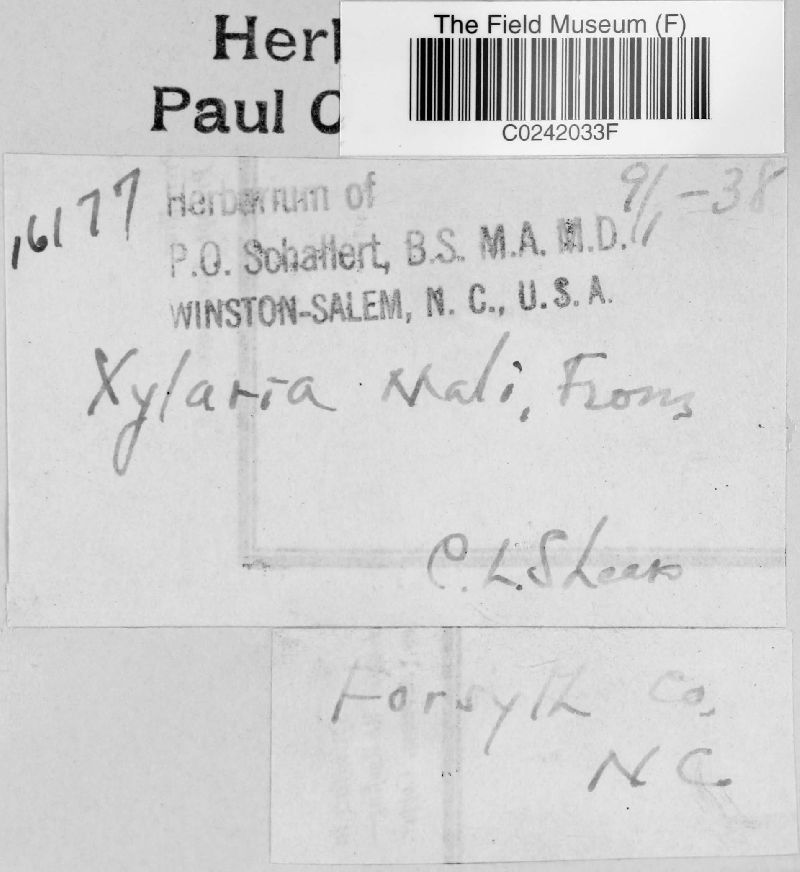 The Field Museum (F)
C0242033F
Paul
16177
9/1-38
Herbarium of
P.O. Schallert, B.S. M.A. M.D.
WINSTON-SALEM, N. C., U.S.A.
Xylaria Mali, From
C.L. Shear
Forsyth Co.
N C.